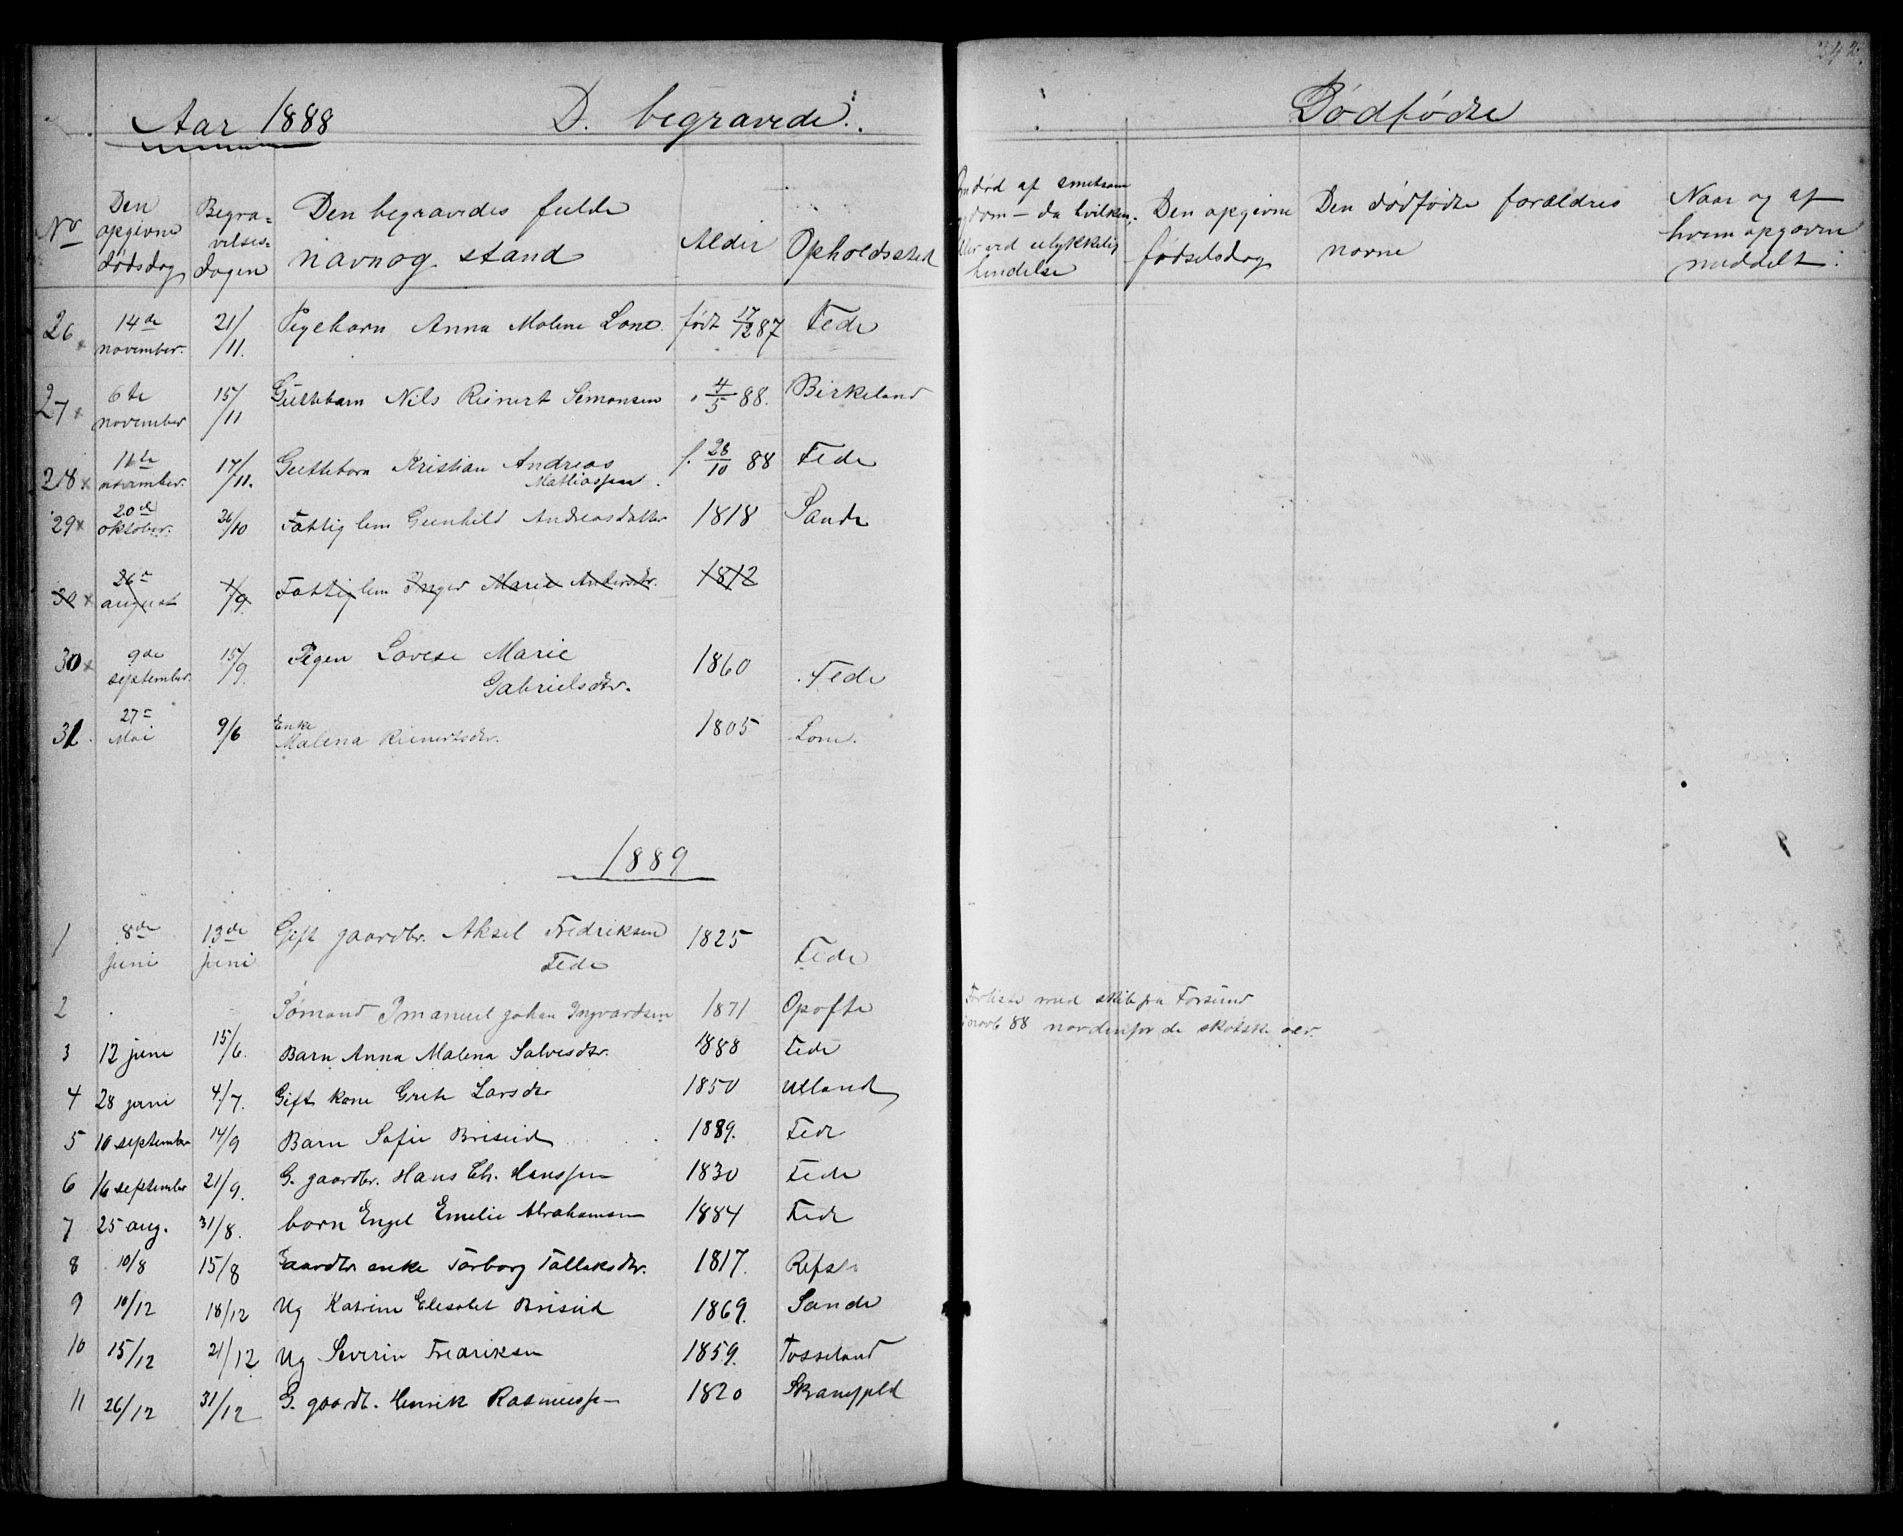 342.
Aar 1888 D. begravede. Dødfødte
No Den opgivne dødsdag Begravelses-dagen Den begravedes fulde navn og stand Alder Opholdssted Om død af smitsom sygdom – da hvilken, eller ved ulykkelig hendelse Den opgivne fødselsdag Den dødfødte forældres navne Naar og af hvem opgaven meddelt.
26 14de november. 21/11. Pigebarn Anna Malene Lone. født 17/12 87 Fede
27 6te november 15/11 Guttebarn Nils Reinert Simonsen " 4/5 88. Birkeland
28 11te november. 17/11. Guttebarn Kristian Andreas Mathiassen. f. 28/10 88 Fede
29 20de oktober. 26/10 Fattiglem Gunhild Andreasdatter 1818 Sande
30 26de august 1/9. Fattiglem Inger Marie Andersdtr. 1812
30 9de september. 15/9. Pigen Lovise Marie Gabrielsdtr. 1860 Fede
31. 27de Mai 9/6 Enke Malena Reinertsdtr. 1805 Lone.
1889
1 8de juni 13de juni Gift gaardbr. Aksel Fredriksen Fede 1825 Fede
2 Sømand Imanuel Johan Ingvardsen 1871 Opofte Forliste med skib fra Farsund i novb 88 nordenfor de skotske øer.
3 12 juni 15/6. Barn Anna Malena Salvesdtr. 1888 Fede
4 28 juni 4/7. Gift kone Grete Larsdtr 1850 Ulland
5 10 september 14/9 Barn Sofie Briseid 1889. Fede
6 16 september 21/9. G. gaardbr. Hans Ch. Hanssen 1830 Fede
7 25 aug. 31/8. barn Engel Emilie Abrahamsen 1884 Fede
8 10/8 15/8 Gaardbr enke Torborg Tallaksdtr. 1817. Refsti
9 10/12 18/12 Ug Katrine Elisabet Briseid 1869. Sande
10 15/12 21/12 Ug Severin Fredriksen 1859. Tosseland
11 26/12 31/12 G. gaardb. Henrik Rasmussen 1820